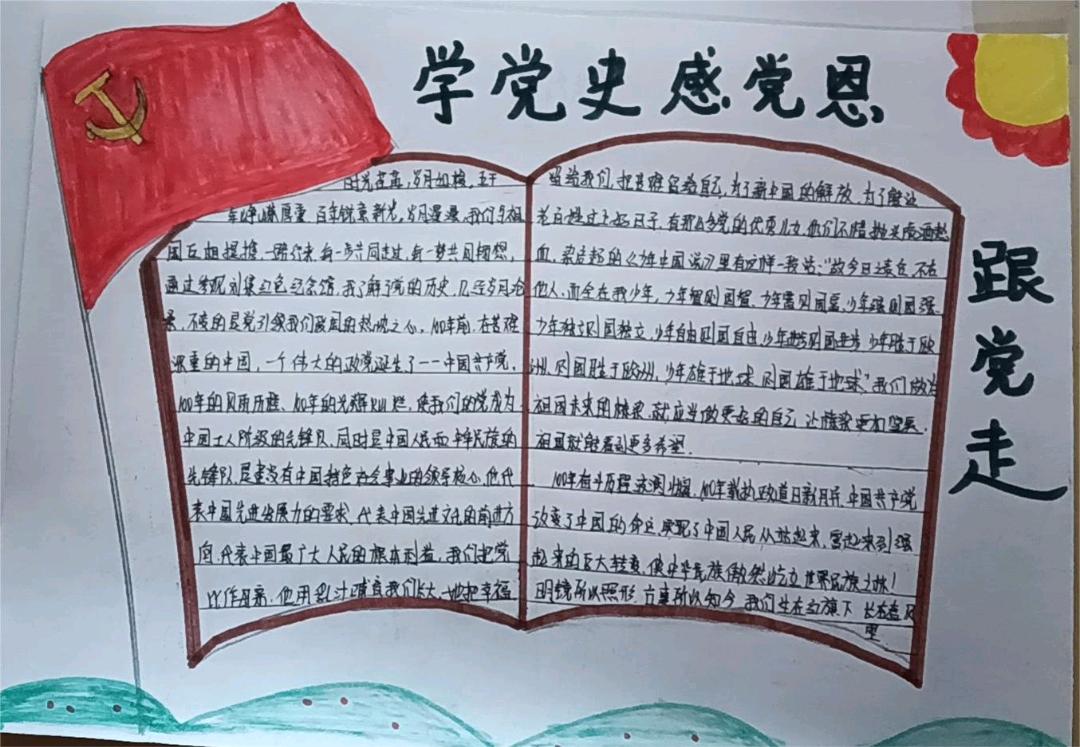 学党史感党恩
跟党走
时光荏苒，岁月如梭，五千
年峥嵘厚重，百年锐意新光，岁月漫漫，我们与祖
国互相提携，一路行来，每一步共同走过，每一梦共同拥想，
通过参观刘集红色纪念馆，我了解了党的历史，几近岁月沧
桑，不变的是党引领我们爱国的热忱之心。100年前，在苦难
深重的中国，一个伟大的政党诞生了——中国共产党。
100年的风雨历程、100年的光辉灿烂，使我们的党成为
中国工人阶级的先锋队，同时是中国人民和中华民族的
先锋队，是建设有中国特色社会事业的领导核心，他代
表中国先进发展力的要求，代表中国先进文化的前进方
向，代表中国最广大人民的根本利益，我们把党
比作母亲，他用乳汁哺育我们长大，她把幸福
留给我们，把艰难留给自己，为了新中国的解放，为了能让
老百姓过上好日子，有那么多党的优秀儿女，他们不惜抛头颅洒热
血，梁启超的《少年中国说》里有这样一段话：“故今日之责任，不在
他人，而全在我少年，少年智则国智，少年富则国富，少年强则国强，
少年独立则国独立，少年自由则国自由，少年进步则国进步，少年胜于欧
洲，则国胜于欧洲，少年雄于地球，则国雄于地球。”我们做为
祖国未来的栋梁，就应当做更好的自己，让栋梁更加坚实，
祖国就能看到更多希望。
100年奋斗历程波澜壮阔，100年执政道日新月异，中国共产党
改变了中国的命运，实现了中国人民从站起来，富起来到强
起来的巨大转变，使中华民族傲然屹立世界民族之林！
明镜所以照形，古事所以知今，我们生在红旗下，长在春风
里